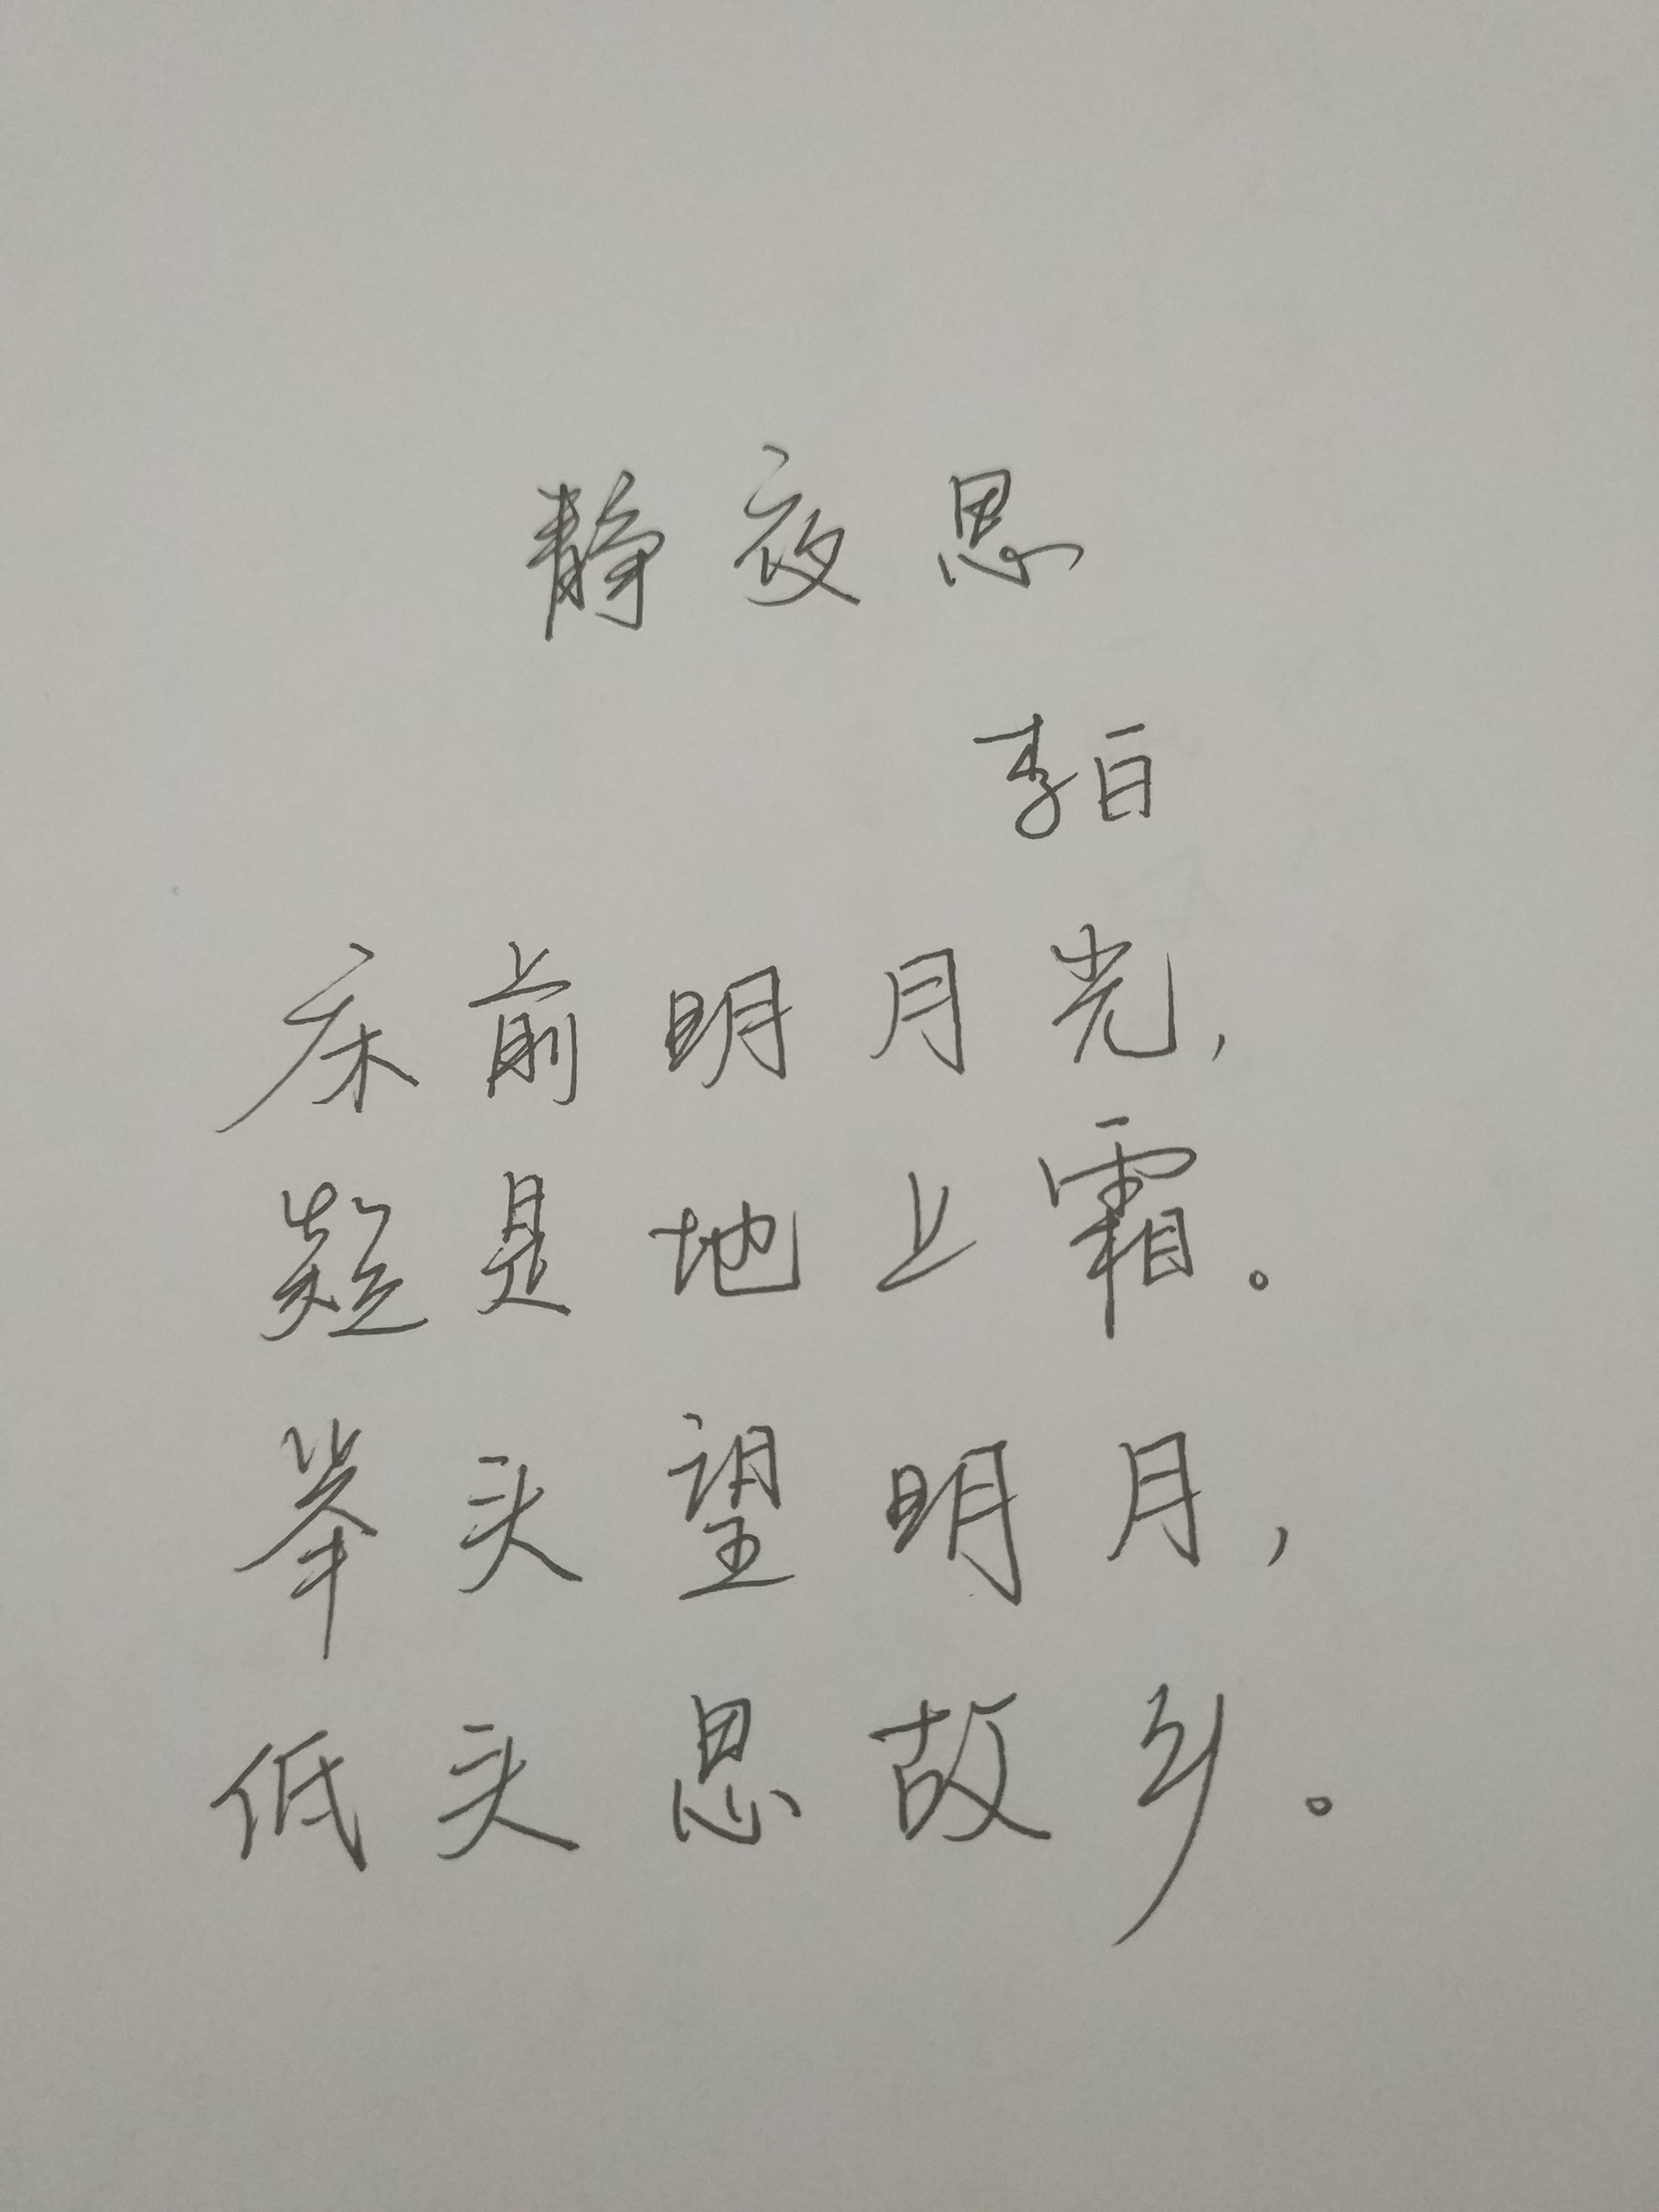 静夜思
李白
床前明月光，
疑是地上霜。
举头望明月，
低头思故乡。